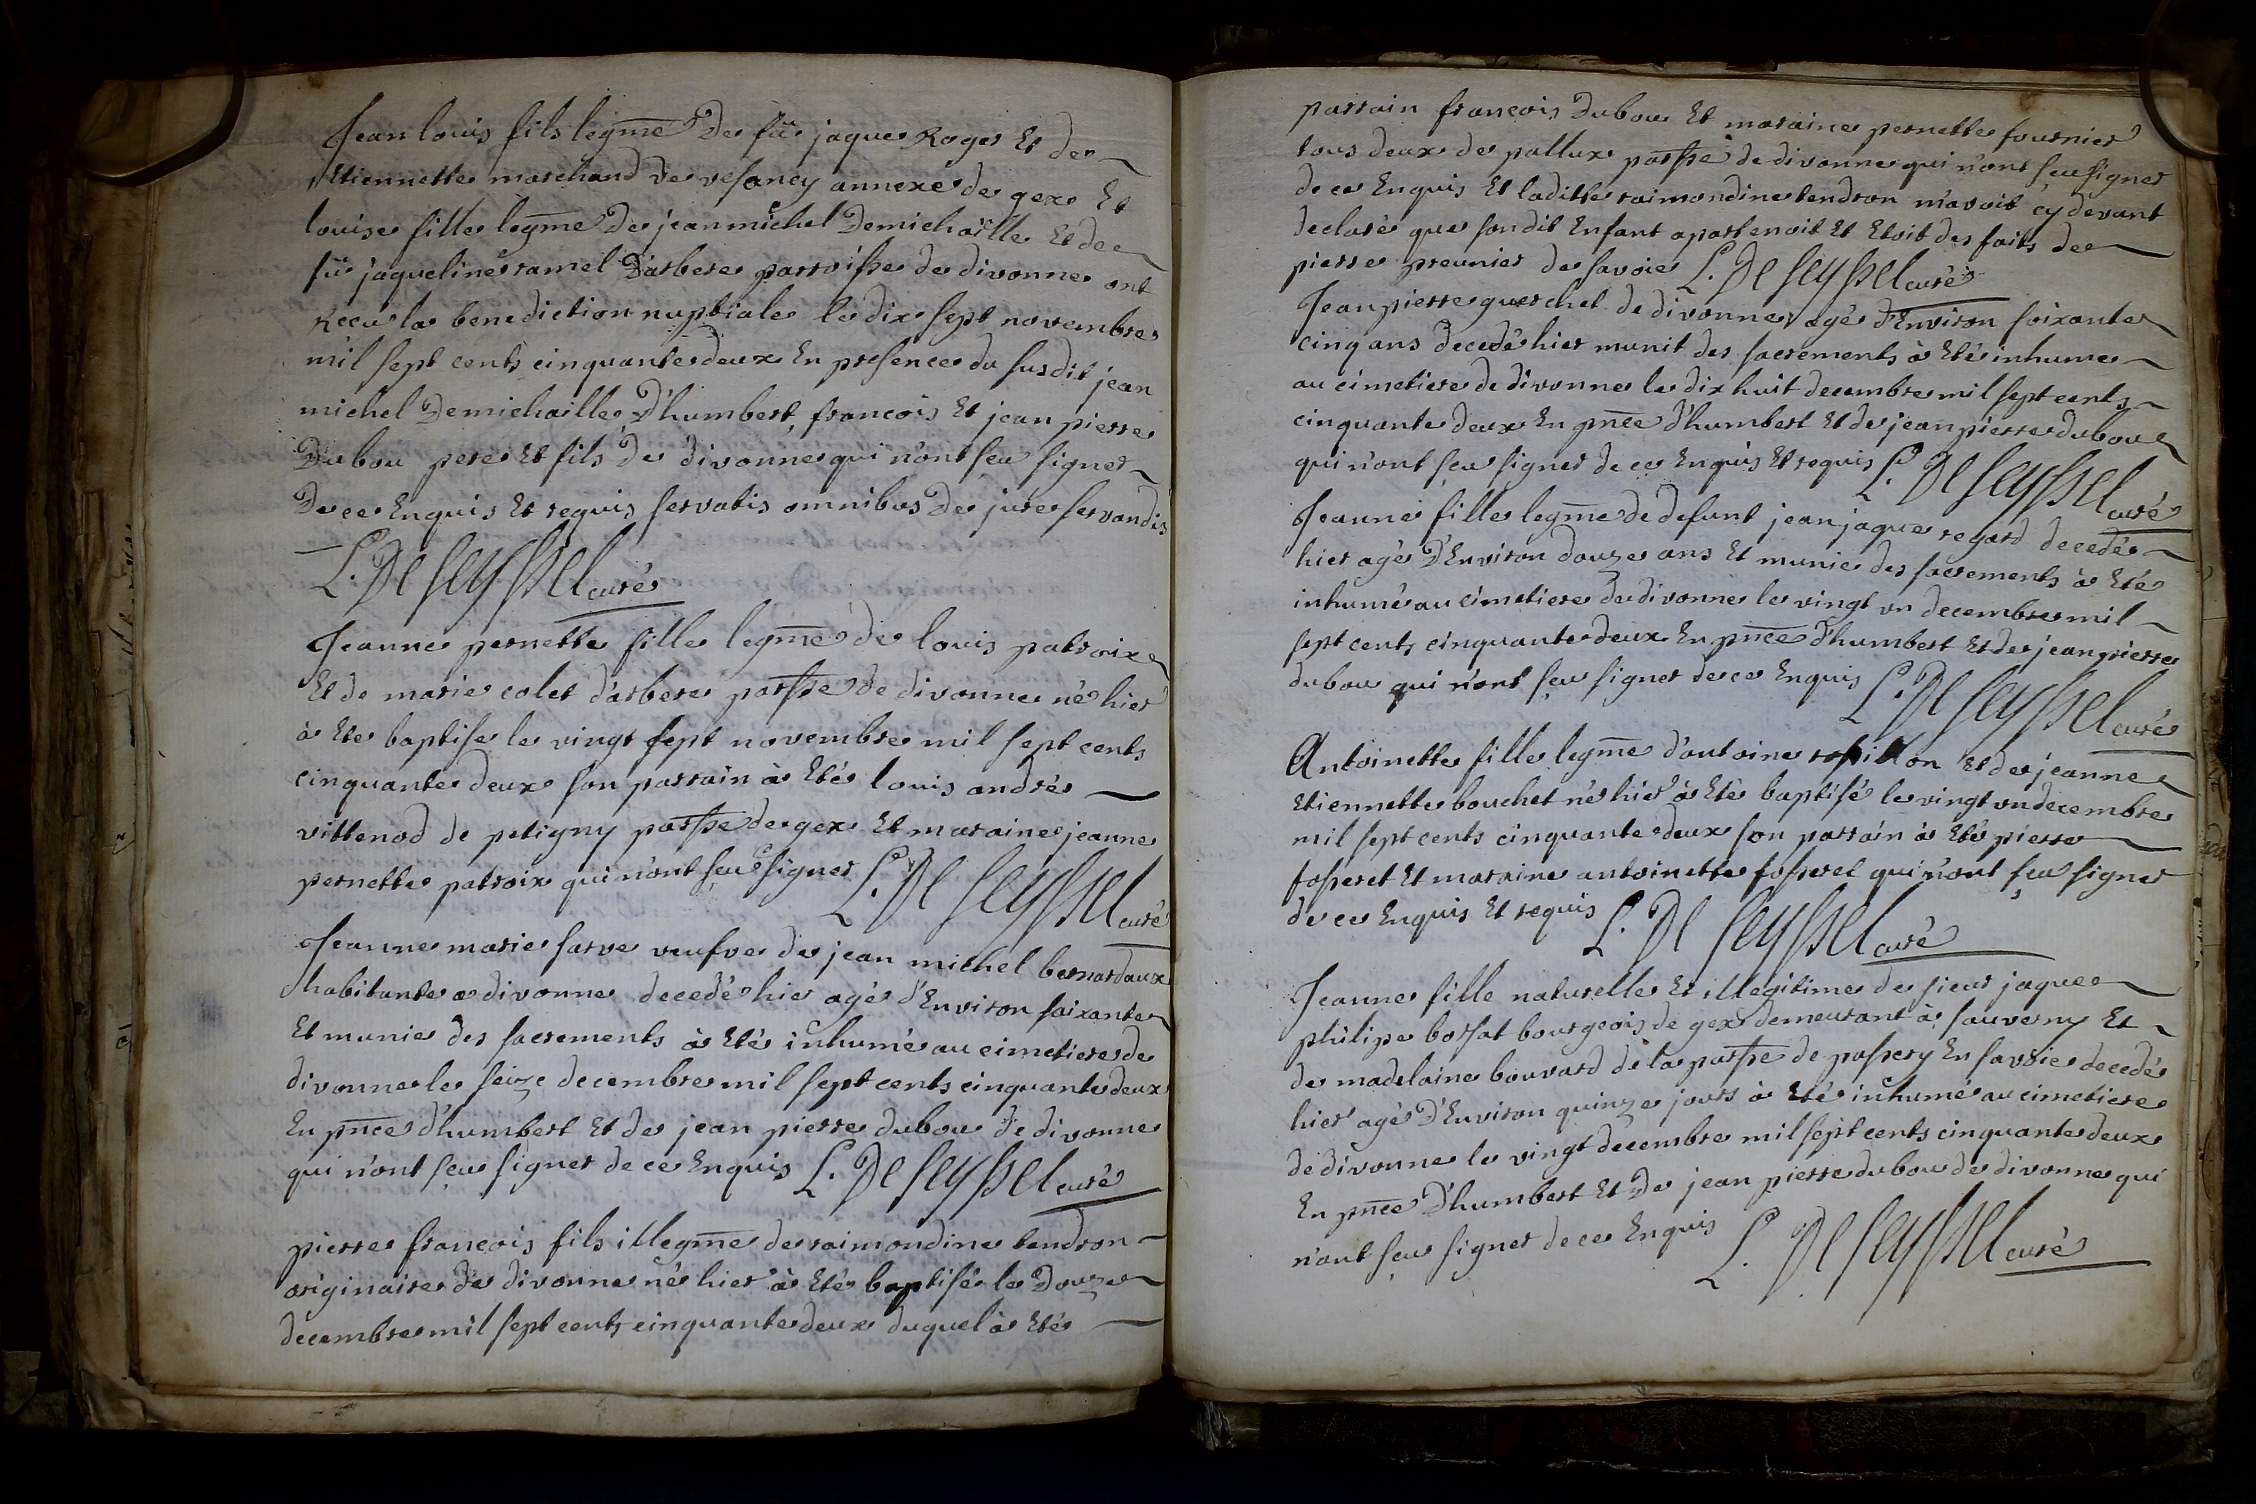 Jean louis fils legme De fû jaque Roger Et de
Etiennette marchand De vesancy annexe de gex Et
louise fille legme De jean michel Demichaille Et de
fû jaqueline ramel D'arbere parroisse de divonne ont
Recu la benediction nuptiale le dix sept novembre
mil sept cents cinquante deux En presence du susdit jean
michel Demichaille D'humbert, francois Et jean pierre
Dubou pere Et fils de divonne qui n'ont sçu signer
De ce Enquis Et requis servatis omnibus De jure servandis
L. De Seyssel curé
Jeanne pernette fille legme de louis patroix
Et de marie colet d'arbere parsse de divonne né hier
à Ete baptise le vingt sept novembre mil sept cents
cinquante deux son parrain à Eté louis andré
vittenod de petigny parsse de gex Et maraine jeanne
pernette patroix qui n'ont sçu signer L. De Seyssel curé
Jeanne marie sarve veufve de jean michel bernardaux
habitante a divonne decedé hier agé d'Environ soixante
Et munie des sacrements à Eté inhumé au cimetiere de
divonne le seize decembre mil sept cents cinquante deux
En pnce d'humbert Et de jean pierre dubou de divonne
qui n'ont sçu signer de ce Enquis L. De Seyssel curé
pierre françois fils illegme de raimondine tendron
originaire de divonne né hier à Eté baptisé le Douze
decembre mil sept cents cinquante deux duquel à Eté
parrain francois Dubou Et maraine pernette fournier
tous deux de pallux parsse de divonne qui n'ont sçu signer
de ce Enquis Et laditte raimondine tendron m'avoit cy devant
declaré que son dit Enfant apartenoit Et Etoit des faits de
pierre preunier de savoie L. De Seyssel curé
Jean pierre querchet de divonne agé d'Environ soixante
cinq ans decedé hier munit des sacrements à Eté inhume
au cimetiere de divonne le dix huit decembre mil sept cents
cinquante deux En pnce d'humbert Et de jean pierre dubou
qui n'ont sçu signer de ce Enquis Et requis L. De Seyssel curé
Jeanne fille legme de defunt jean jaque regard decedé
hier agé D'Environ douze ans Et munie des sacrements à Eté
inhumé au cimetiere de divonne le vingt un decembre mil
sept cents cinquante deux En pnce d'humbert Et de jean pierre
dubou qui n'ont sçu signer de ce Enquis L. De Seyssel curé
Antoinette fille legme d'antoine Et de jeanne
Etiennette bouchet né hier à Eté baptisé le vingt un decembre
mil sept cents cinquante deux son parrain à Eté pierre
fosseret Et maraine antoinette fosseret qui n'ont sçu signer
de ce Enquis Et requis L. De Seyssel curé
Jeanne fille naturelle Et illegitime de sieur jaque
philipe borsat bourgeois de gex demeurant à sauverny Et
de madelaine bouvard de la parsse de passery En savoie decedé
hier agé D'Environ quinze jours à Eté inhumé au cimetiere
de divonne le vingt decembre mil sept cents cinquante deux
En pnce D'humbert Et De jean pierre dubou de divonne qui
n'ont sçu signer de ce Enquis L. De Seyssel curé